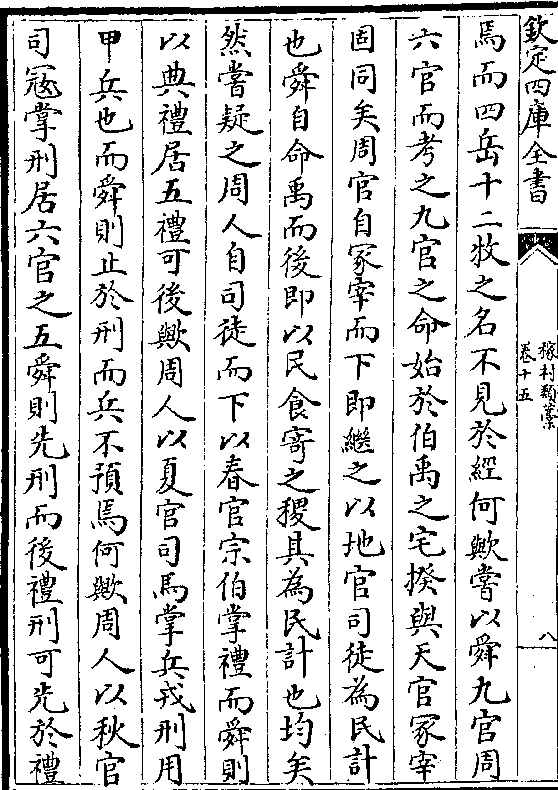 欽定四庫全書
稼村類藁
卷十五
八
焉而四岳十二牧之名不見於經何歟嘗以舜九官周
六官而考之九官之命始於伯禹之宅揆與天官冢宰
固同矣周官自冢宰而下即繼之以地官司徒為民計
也舜自命禹而後即以民食寄之稷其為民計也均矣
然嘗疑之周人自司徒而下以春官宗伯掌禮而舜則
以典禮居五禮可後歟周人以夏官司馬掌兵戎刑用
甲兵也而舜則止於刑而兵不預焉何歟周人以秋官
司寇掌刑居六官之五舜則先刑而後禮刑可先於禮